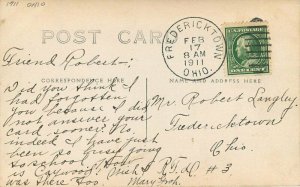 1911 OHIO
POST CARD
FREDERICKTOWN
FEB
17
8 AM
1911
OHIO.
CORRESPONDENCE HERE
NAME AND ADDRESS HERE
Friend Robert:
Did you think I
had forgotten
you because I did
not answer your
card sooner? No,
indeed I have just
been so busy going
to school. How
is Caywood? Mich
was there too
Mr Robert Langley
Fredericktown
Ohio.
R.F.D. # 3